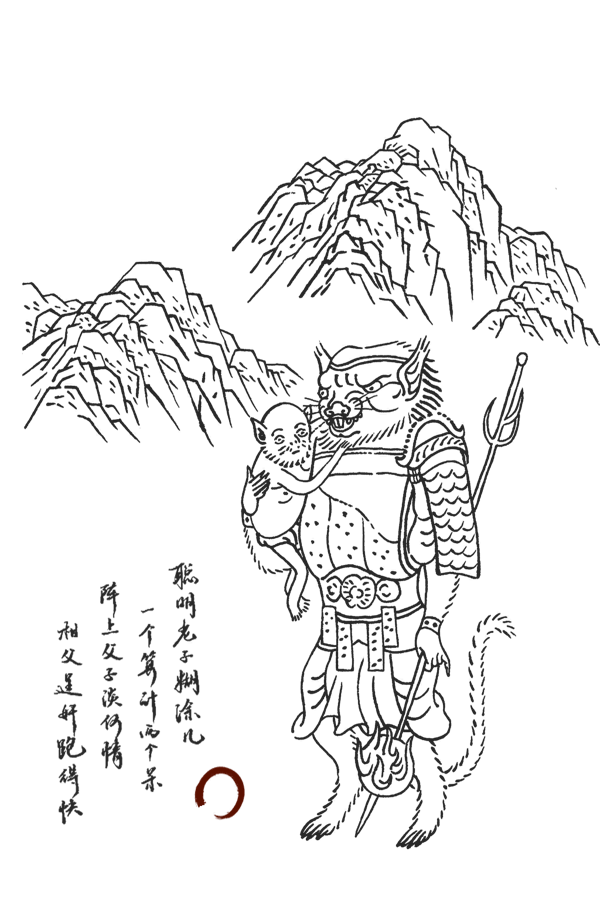 聪明老子糊涂儿
一个算计两个呆
阵上父子演何情
祖父逞奸跑得快